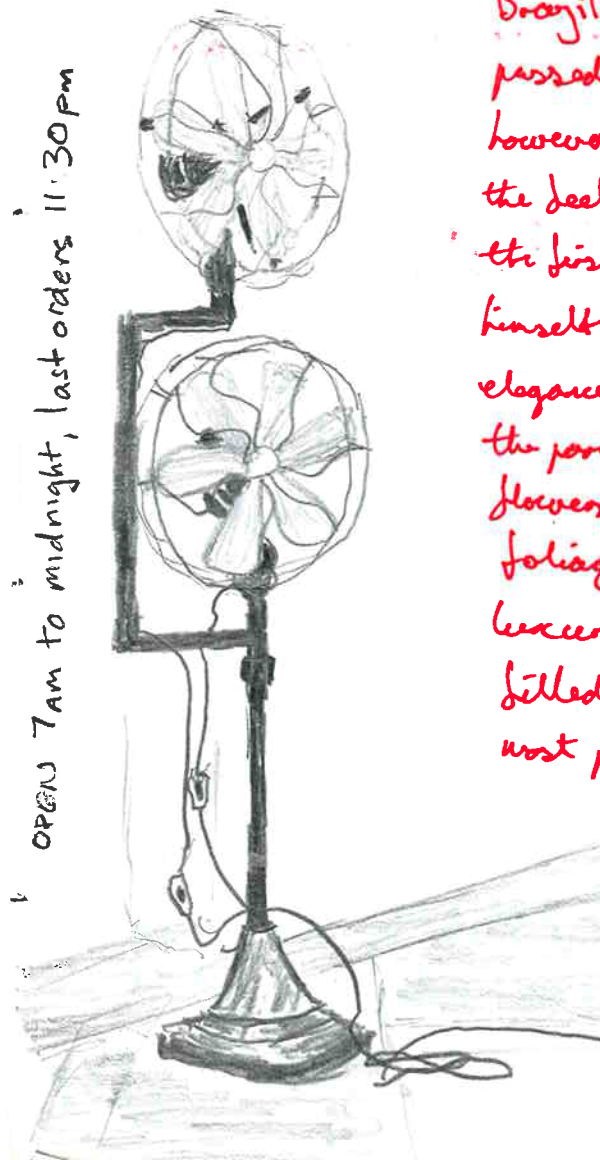 OPENS 7AM to midnight, last orders 11:30pm
Brazil
passed
however
the feel
the firs
himself
elegance
the par
flowers
foliag
luxur
filled
most p